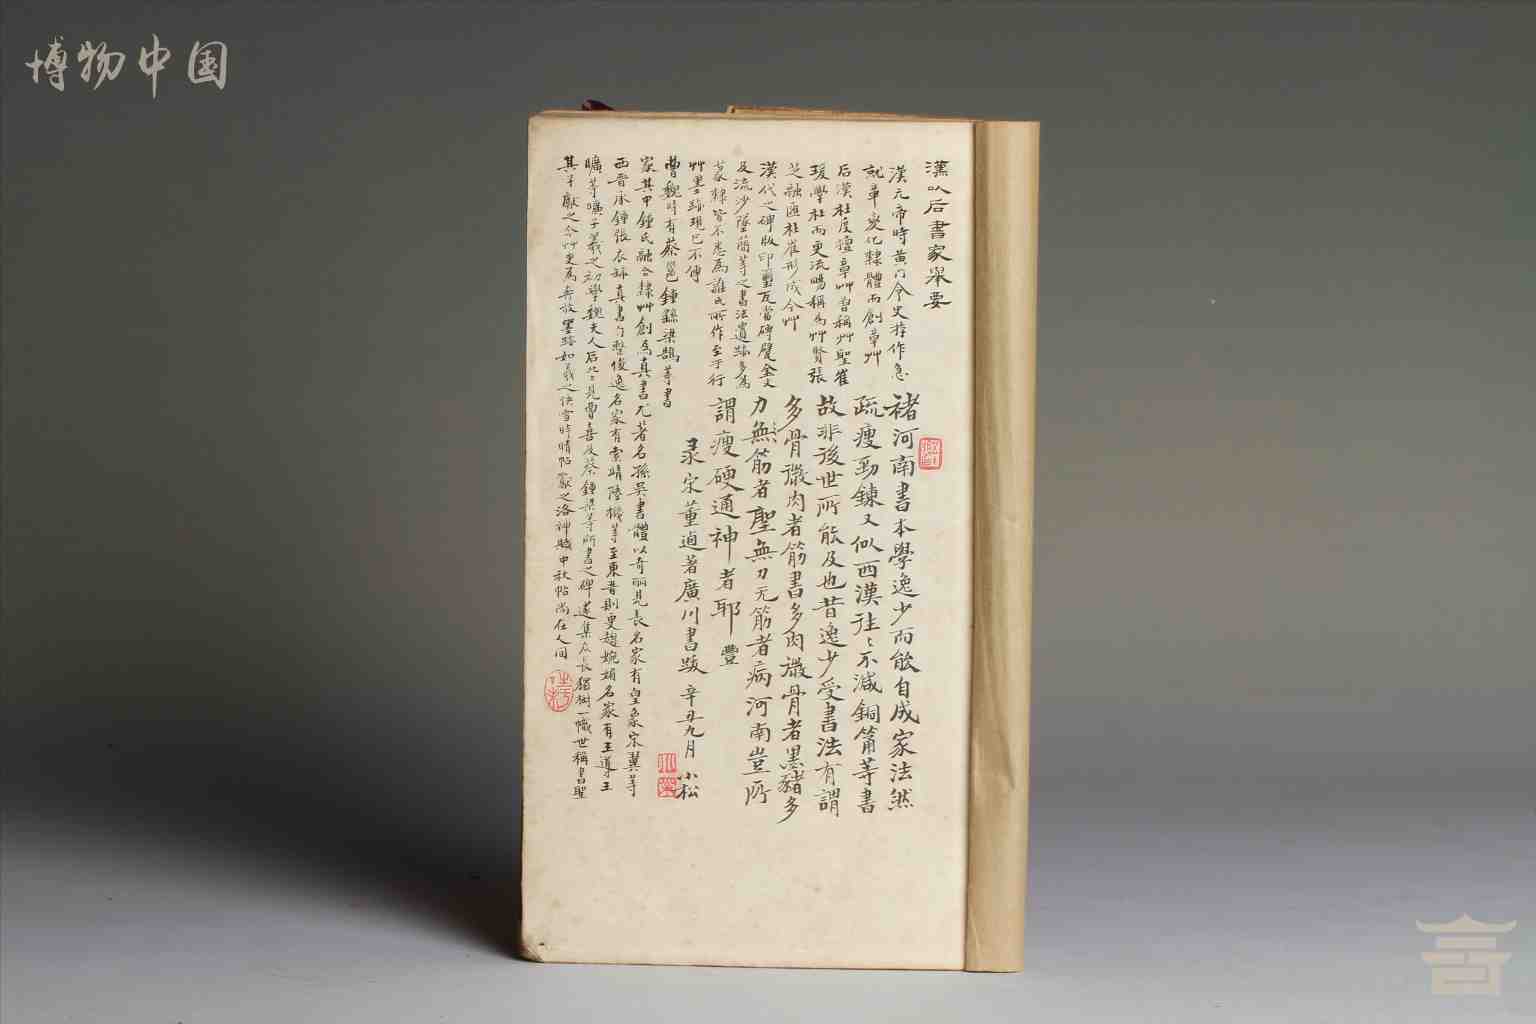 博物中国
漢以后書家舉要
漢元帝時黄門令史游作急
就章變化隸體而創章艸
后漢杜度擅章艸昔稱艸聖崔
瑗學杜而更流暢稱為艸賢張
芝融匯杜崔形成今艸
漢代之碑版印璽瓦當磚甓金文
及流沙墜簡等之書法遺跡多為
篆隸皆不悉為誰氏所作至于行
艸墨跡現已不傳
曹魏時有蔡邕鍾繇梁鵠等書
家其中鍾氏融合隸艸創為真書尤著名孫吳書體以奇麗見長名家有皇象宋翼等
西晉承鍾張衣缽真書勻整俊逸名家有索靖陸機等至東晉則更趨婉媚名家有王導王
曠等曠子羲之初學魏夫人后北見曹喜及蔡鍾梁等所書之碑遂集众長獨樹一幟世稱書聖
其子獻之今艸更為奔放墨跡如羲之快雪時晴帖獻之洛神賦中秋帖尚在人间
褚河南書本學逸少而能自成家法然
疏瘦勁鍊又似西漢往〻不減銅筩等書
故非後世所能及也昔逸少受書法有謂
多骨微肉者筋書多肉微骨者墨豬多
力豐筋者聖無力无筋者病河南豈所
謂瘦硬通神者耶
彔宋董逌著廣川書跋 辛丑九月 小松